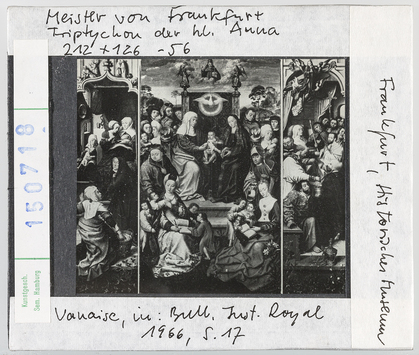 Meister von Frankfurt
Triptychon der hl. Anna
212 x 126 -56
Frankfurt, Historisches Museum
150718
Kunstgesch.
Sem. Hamburg
Vanaise, in: Bull. Inst. Royal
1966, S. 17